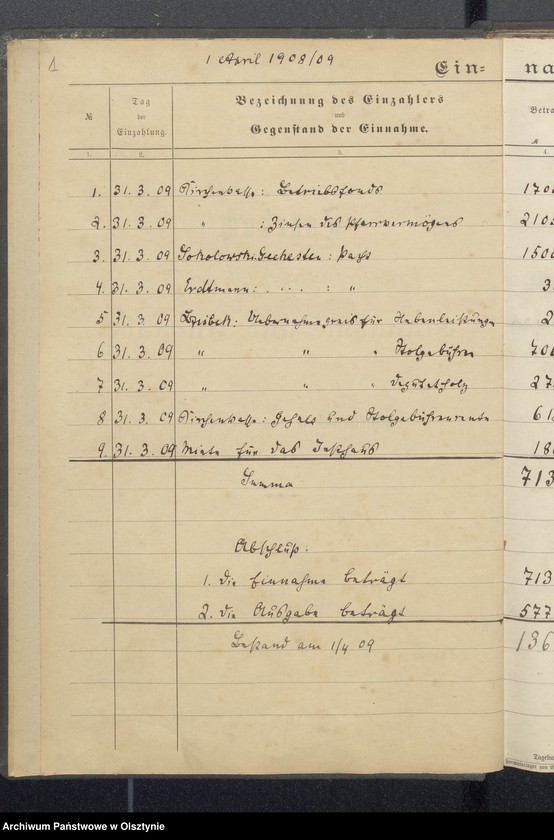 1
1 April 1908/09
Ein= na
№
Tag
der
Einzahlung.
Bezeichnung des Einzahlers
und
Gegenstand der Einnahme.
Betra
ℳ
1. 2. 3. 4.
1. 31. 3. 09 Kirchenkasse: Betriebsfonds 170
2. 31. 3. 09 " : Zinsen des Pfarrvermögens 210
3. 31. 3. 09 Sokolowski : Pacht 150
4. 31. 3. 09 Erdtmann: . . . . : " 3
5 31. 3. 09 Übernahmepreis für Nebenleistungen 2
6 31. 3. 09 " " " Stolgebühren 70
7 31. 3. 09 " " " Deputatholz 27
8 31. 3. 09 Kirchenkasse: Gehalt und Stolgebührenrente 61
9. 31. 3. 09 Miete für das Insthaus 18
Summa 713
Abschluß:
1. die Einnahme beträgt 713
2. die Ausgabe beträgt 577
Bestand am 1/4 09 136
Archiwum Państwowe w Olsztynie